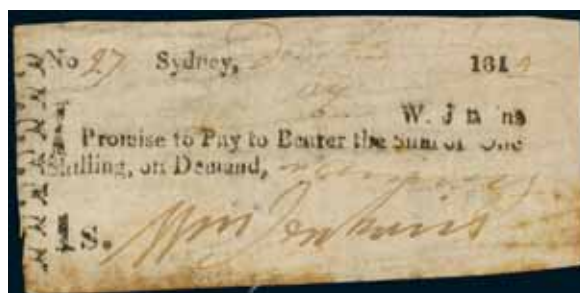 No 27 Sydney, 181
W. J n ns
I Promise to Pay to Bearer the Sum of One
Shilling, on Demand,
1s. Wm Jenkins